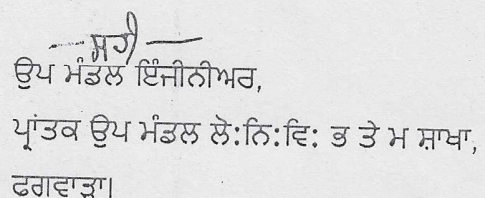 --- ਸਹੀ ---
ਉਪ ਮੰਡਲ ਇੰਜੀਨੀਅਰ,
ਪ੍ਰਾਂਤਕ ਉਪ ਮੰਡਲ ਲੋ:ਨਿ:ਵਿ: ਭ ਤੇ ਮ ਸ਼ਾਖਾ,
ਫਗਵਾੜਾ।